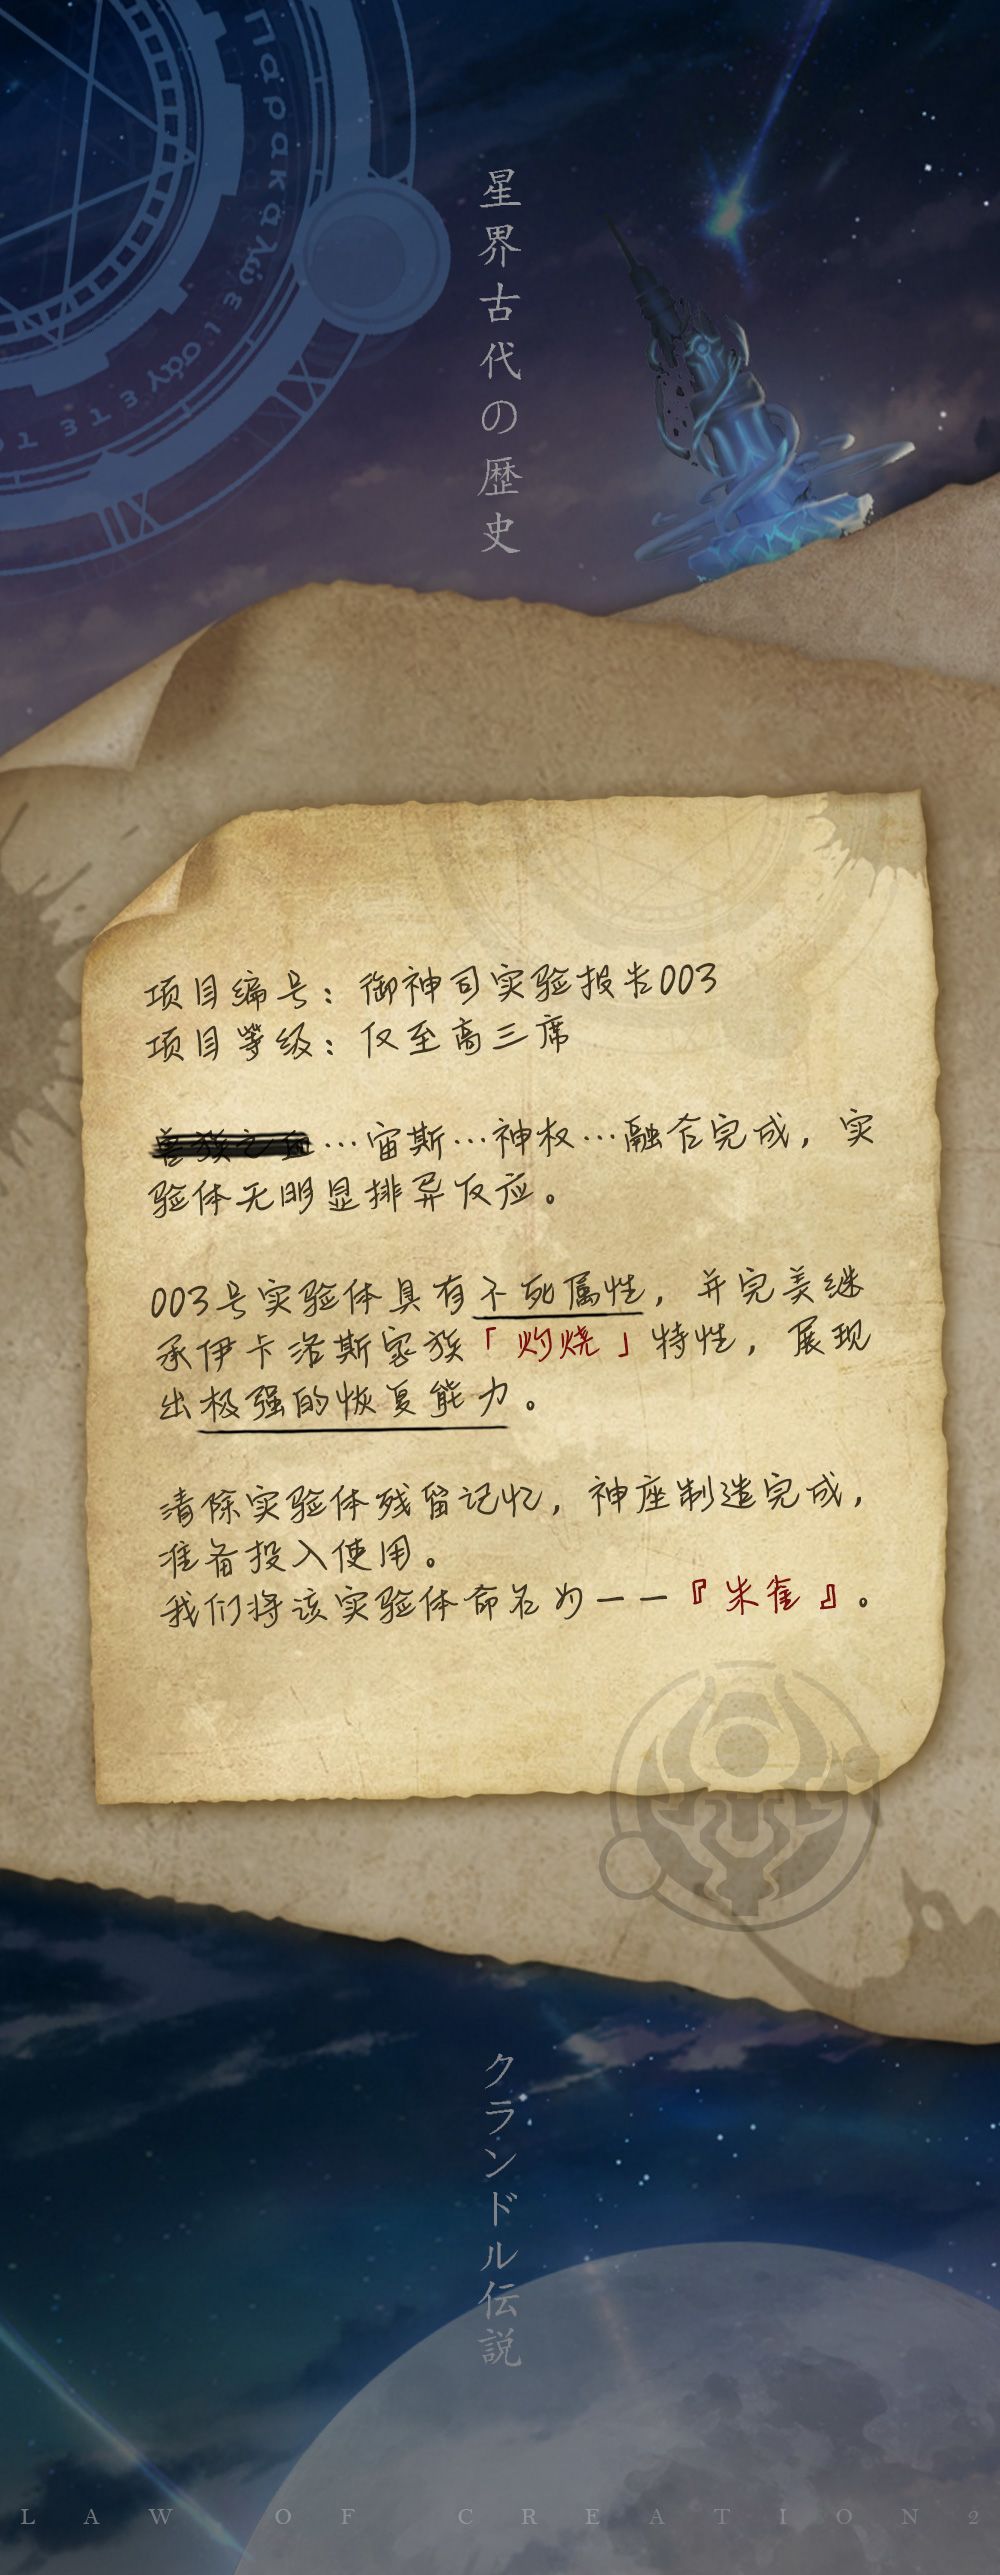 Παρακαλώ εισάγετε τε
星界古代の歴史
项目编号：御神司实验报告003
项目等级：仅至高三席
兽族之血…宙斯…神权…融合完成，实
验体无明显排异反应。
003号实验体具有不死属性，并完美继
承伊卡洛斯家族「灼烧」特性，展现
出极强的恢复能力。
清除实验体残留记忆，神座制造完成，
准备投入使用。
我们将该实验体命名为——『朱雀』。
クランドル伝説
LAW OF CREATION2